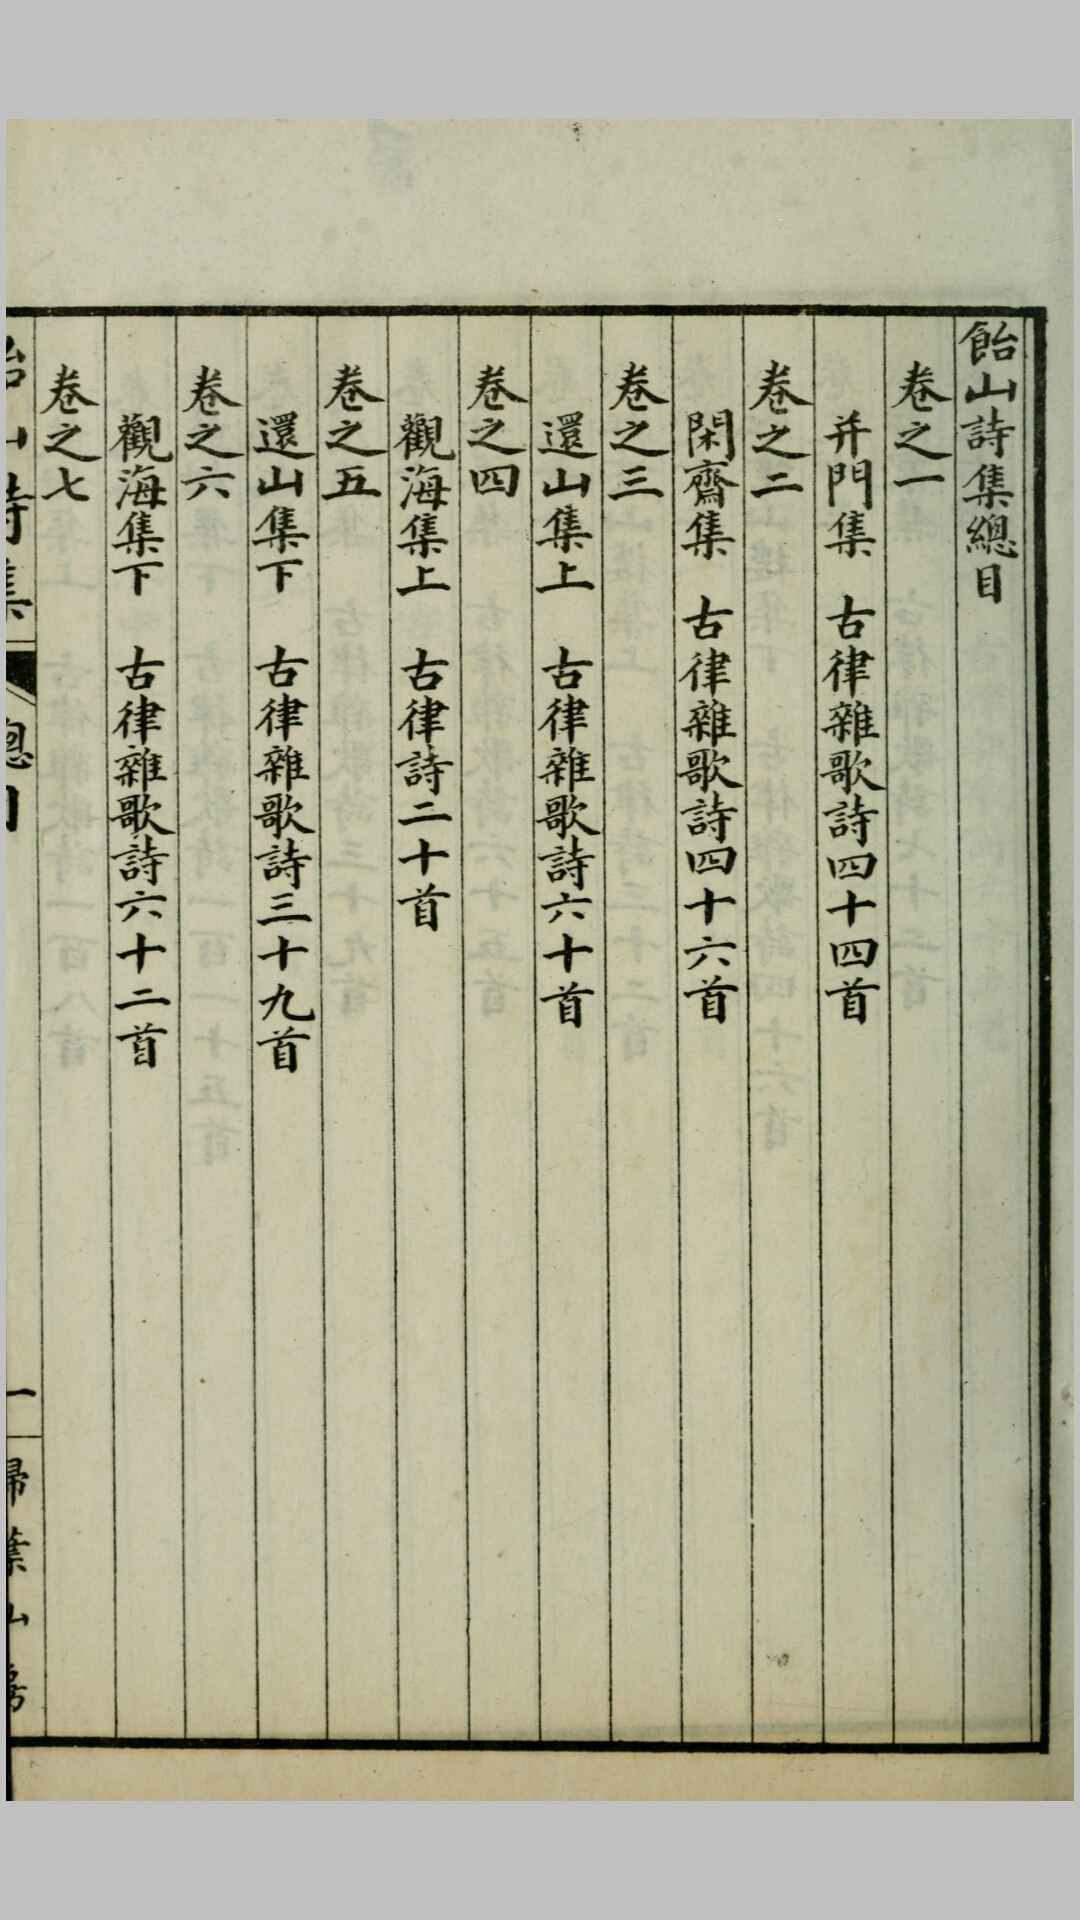 飴山詩集總目
卷之一
幷門集　古律雜歌詩四十四首
卷之二
閑齋集　古律雜歌詩四十六首
卷之三
還山集上　古律雜歌詩六十首
卷之四
觀海集上　古律詩二十首
卷之五
還山集下　古律雜歌詩三十九首
卷之六
觀海集下　古律雜歌詩六十二首
卷之七
飴山詩集　總目　一　掃葉山房